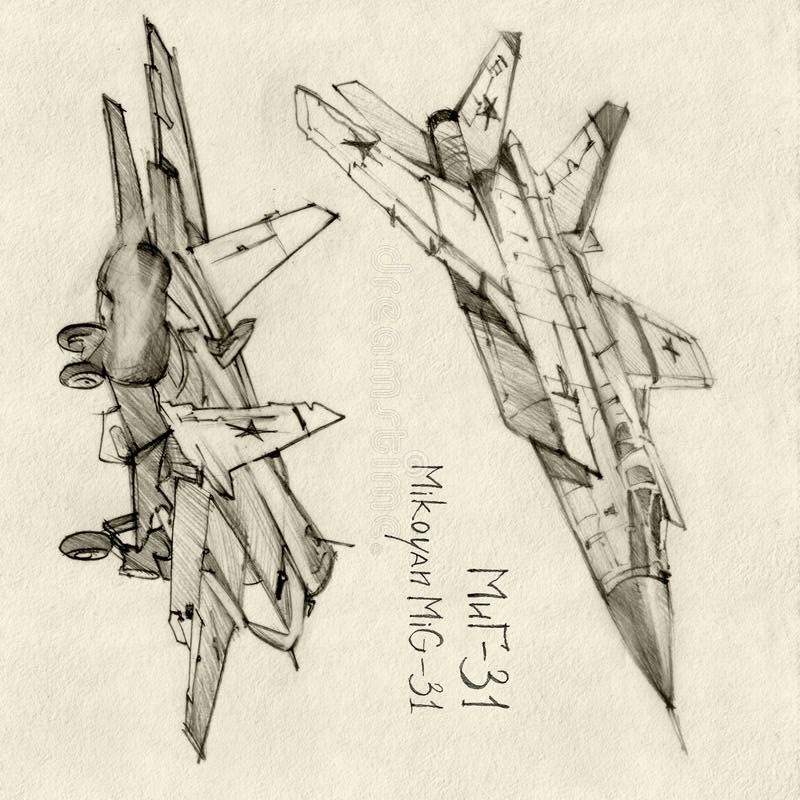 МиГ-31
Mikoyan MiG-31
dreamstime.com